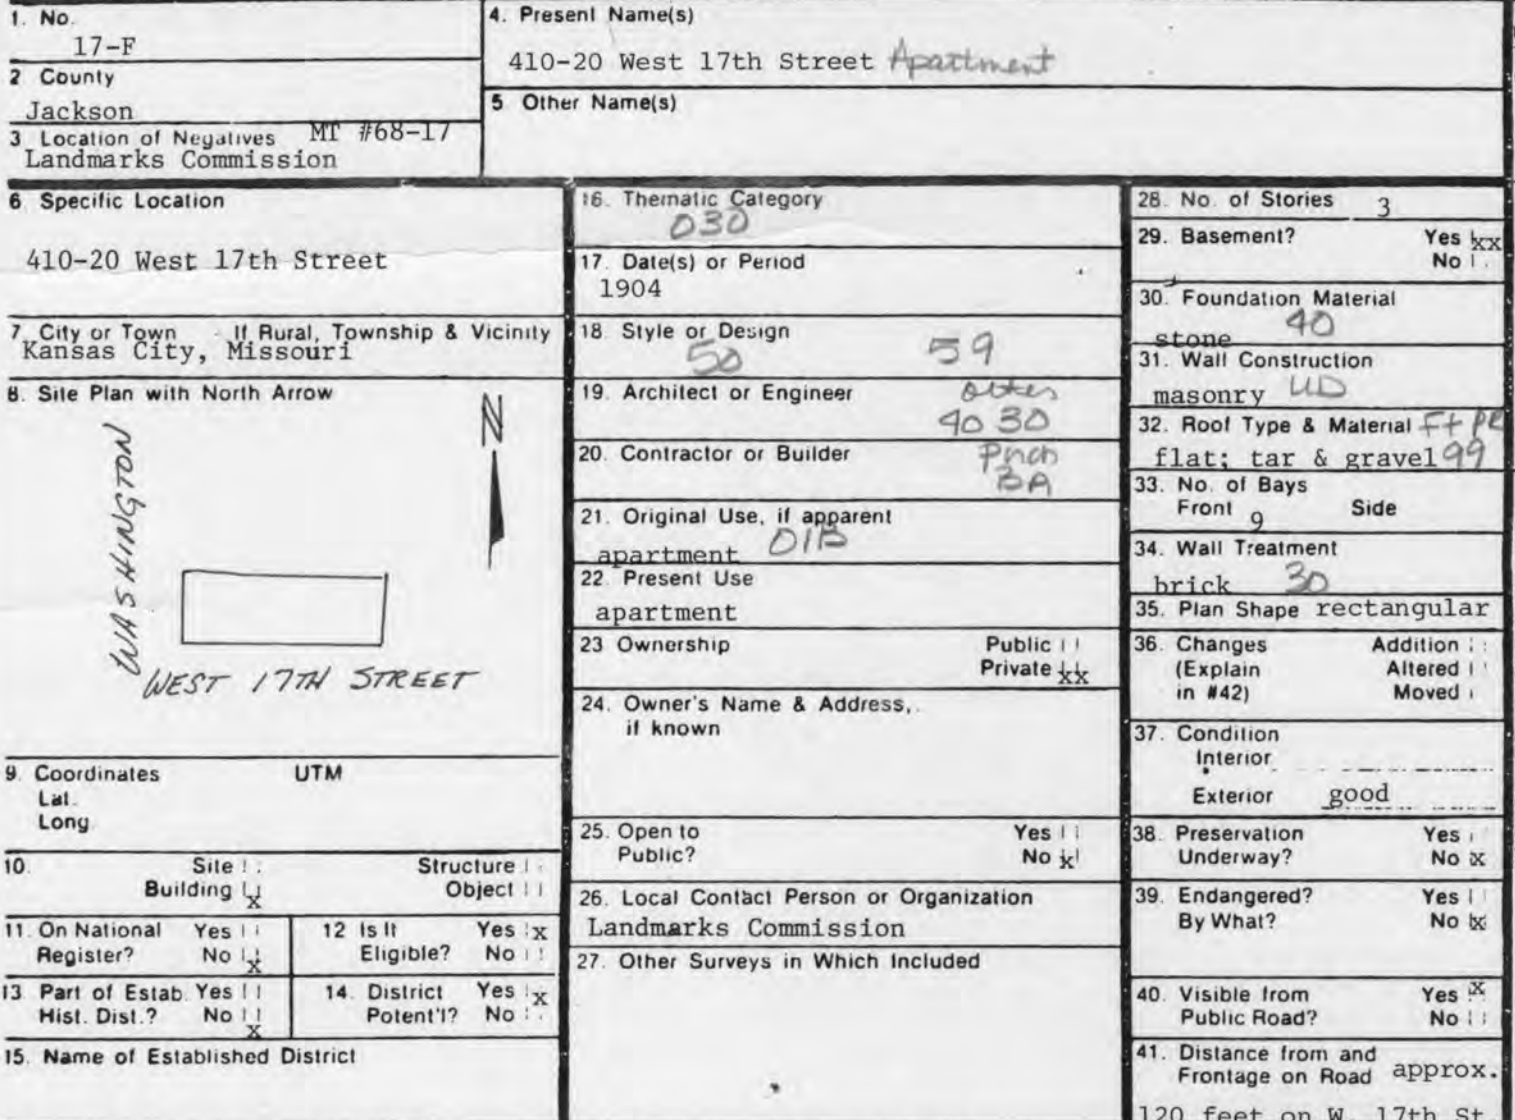 1. No.
17-F
2 County
Jackson
3 Location of Negatives MT #68-17
Landmarks Commission
4. Present Name(s)
410-20 West 17th Street Apartment
5 Other Name(s)
6 Specific Location
410-20 West 17th Street
7 City or Town If Rural, Township & Vicinity
Kansas City, Missouri
8. Site Plan with North Arrow
N
WASHINGTON
WEST 17TH STREET
9. Coordinates UTM
Lat.
Long.
10. Site Structure
Building x Object
11. On National Yes
Register? No x
12 Is It Yes x
Eligible? No
13 Part of Estab. Yes
Hist. Dist.? No x
14. District Yes x
Potent'l? No
15. Name of Established District
16. Thematic Category
030
17. Date(s) or Period
1904
18. Style or Design
50 59
19. Architect or Engineer
40 30
20. Contractor or Builder
21. Original Use, if apparent
apartment 01B
22. Present Use
apartment
23 Ownership Public
Private xx
24. Owner's Name & Address,
if known
25. Open to Yes
Public? No x
26. Local Contact Person or Organization
Landmarks Commission
27. Other Surveys in Which Included
28. No. of Stories 3
29. Basement? Yes xx
No
30. Foundation Material
stone 40
31. Wall Construction
masonry UD
32. Roof Type & Material Ft
flat; tar & gravel 99
33. No. of Bays
Front 9 Side
34. Wall Treatment
brick 30
35. Plan Shape rectangular
36. Changes Addition
(Explain Altered
in #42) Moved
37. Condition
Interior
Exterior good
38. Preservation Yes
Underway? No x
39. Endangered? Yes
By What? No x
40. Visible from Yes x
Public Road? No
41. Distance from and
Frontage on Road approx.
120 feet on W. 17th St